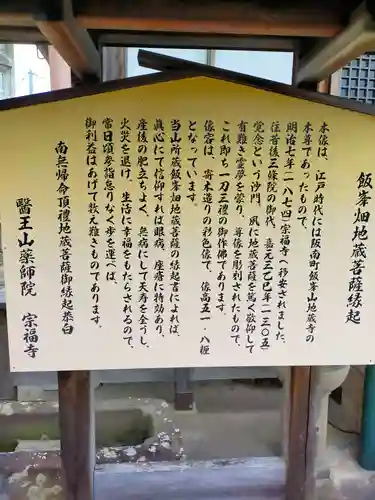 飯峯畑地蔵菩薩縁起
本像は、江戸時代には阪南町飯峯山地蔵寺の
本尊であったもので、
明治七年(一八七四)宗福寺へ移安されました。
往昔後三條院の御代、嘉元三乙巳年(一三〇五)
覚念という沙門、夙に地蔵菩薩を篤く敬仰して
有難き霊夢を蒙り、尊像を彫刻されたもので、
これ即ち一刀三禮の御作佛であります。
像容は、寄木造りの彩色像で、像高五一・八糎
となっています。
当山所蔵飯峯畑地蔵菩薩の縁起書によれば、
眞心にて信仰すれば眼病、痤瘡に特効あり、
産後の肥立ちよく、無病にして天寿を全うし、
火災を退け、生活に幸福をもたらされるので、
常日頃参詣怠りなく歩を運べば、
御利益はあげて数え難きものであります。
南無帰命頂禮地蔵菩薩御縁起恭白
醫王山薬師院 宗福寺